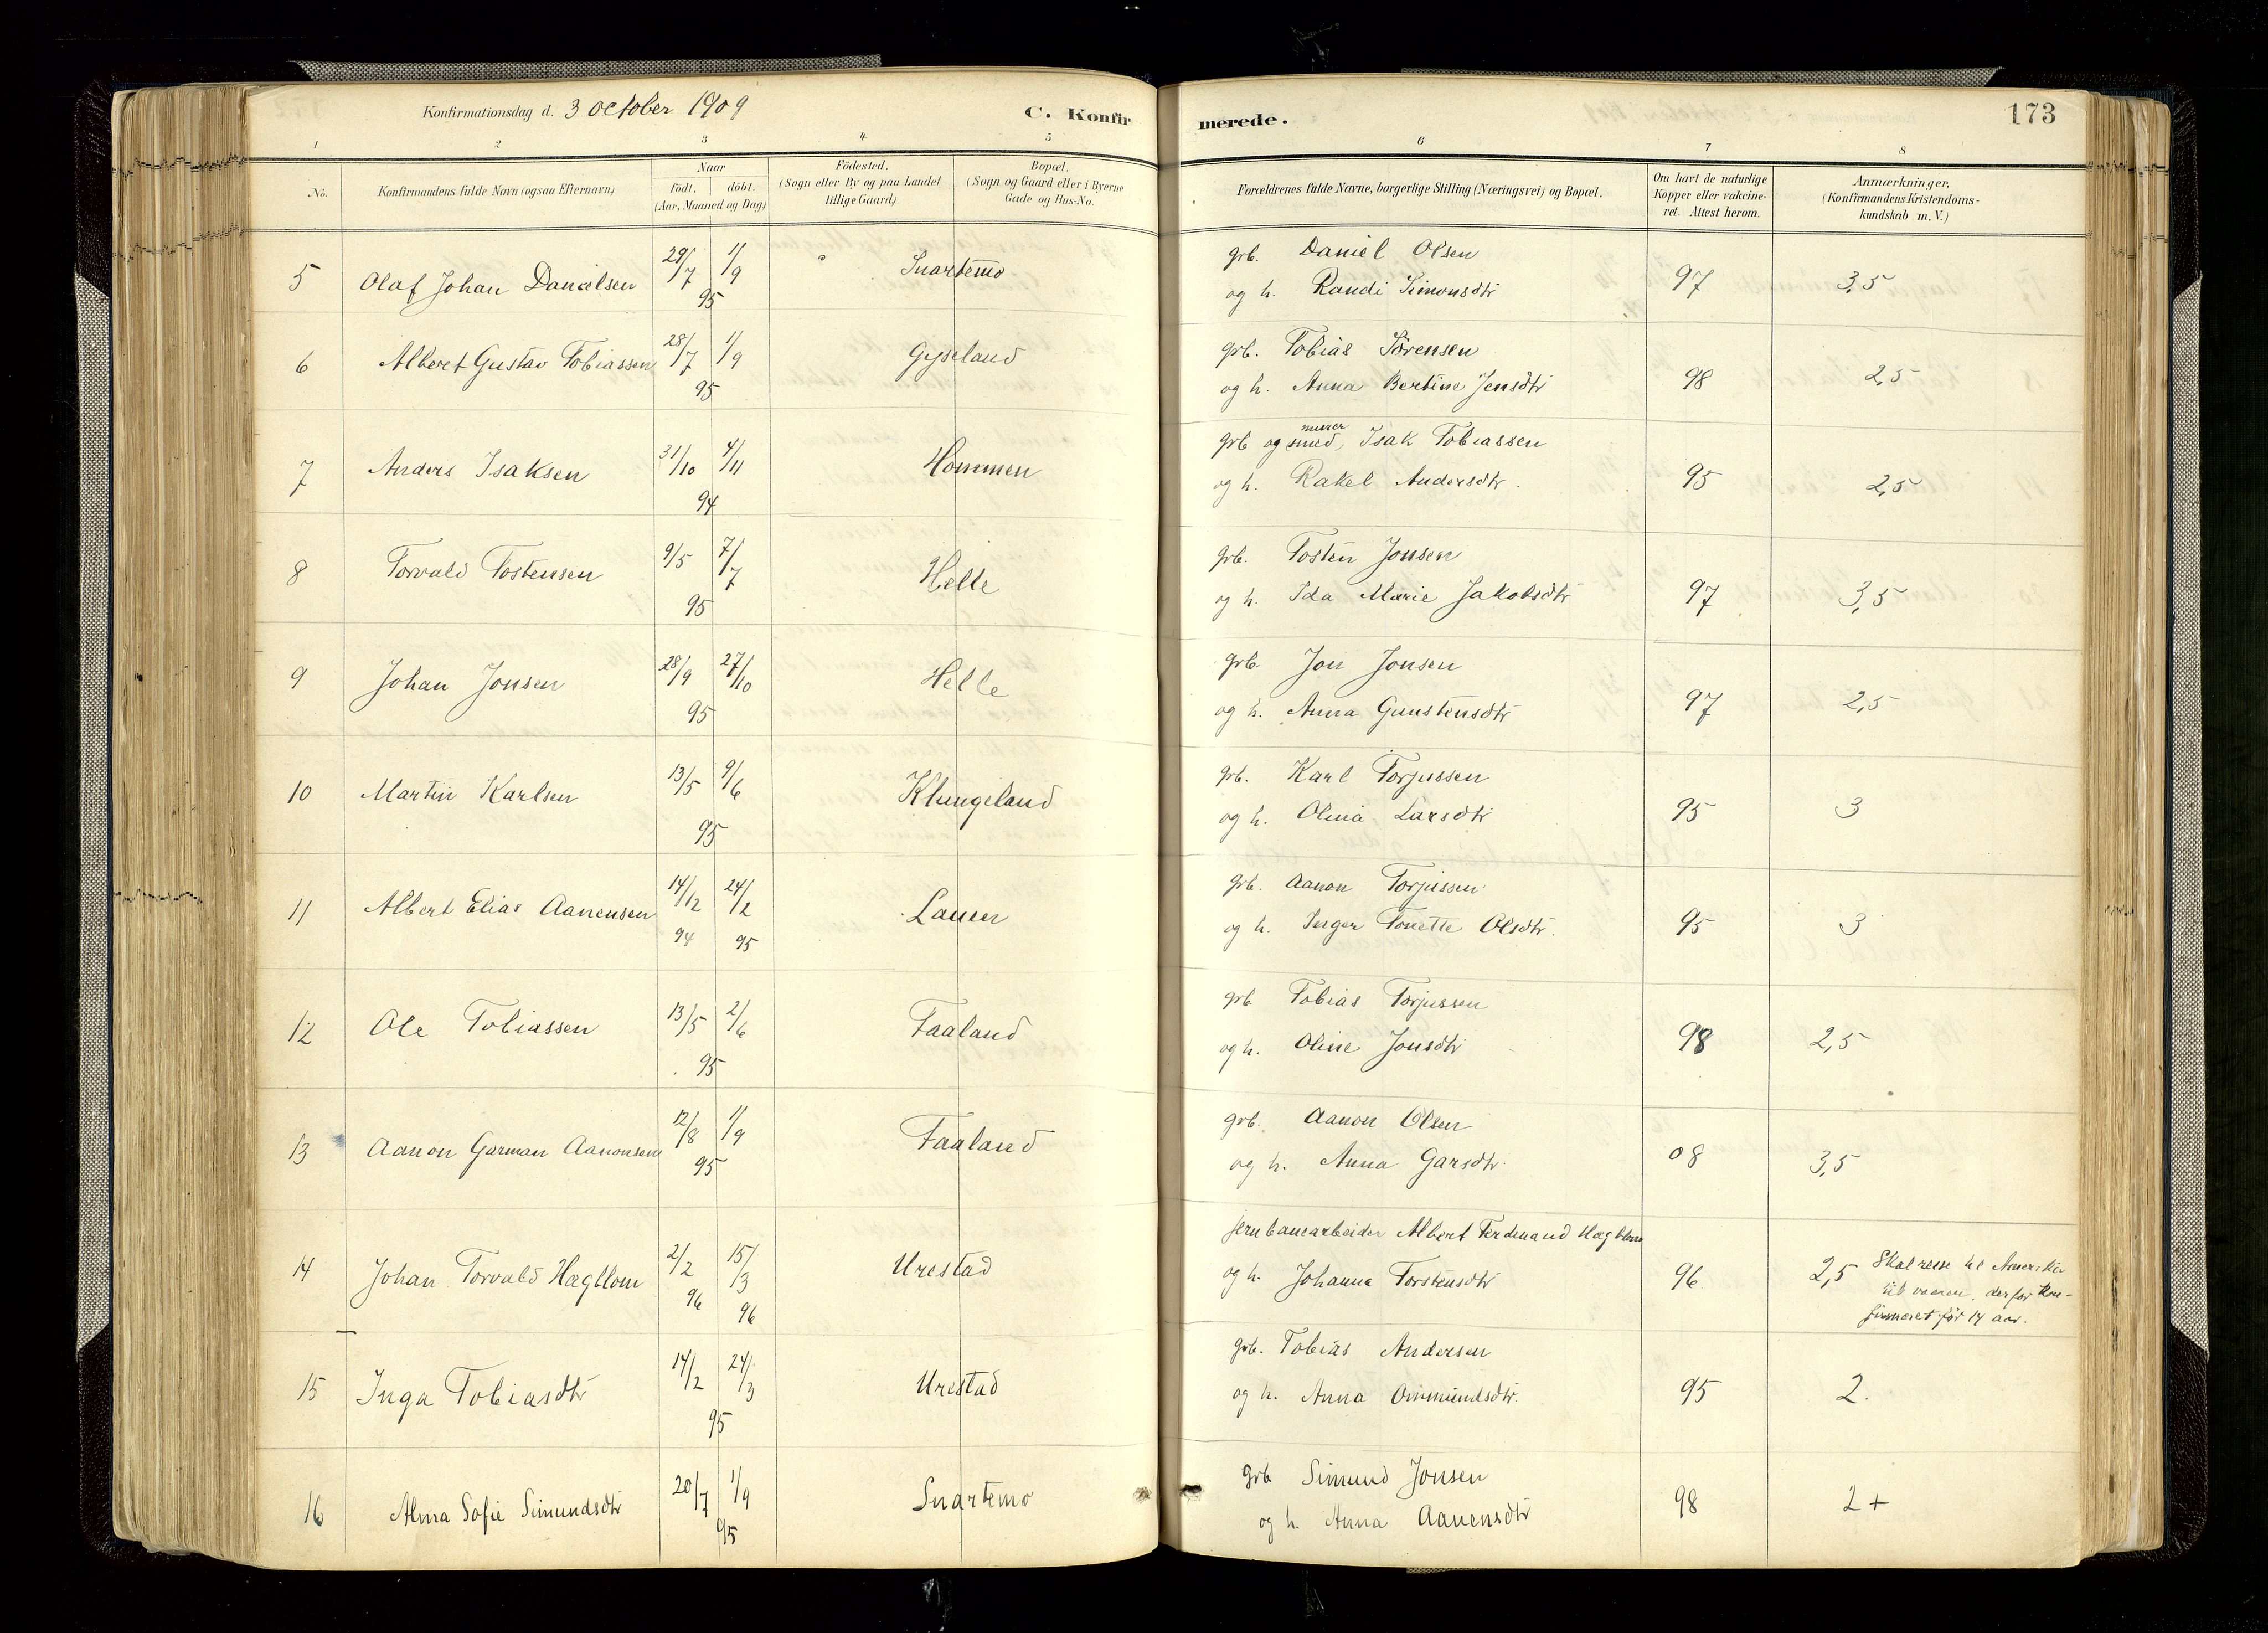 Konfirmationsdag d. 3 october 1909
C. Konfirmerede.
173
1 2 3 4 5 6 7 8
No.
Konfirmandens fulde Navn (ogsaa Efternavn)
Naar
födt. döbt.
(Aar, Maaned og Dag)
Födested.
(Sogn eller By og paa Landet
tillige Gaard)
Bopæl.
(Sogn og Gaard eller i Byerne
Gade og Hus-No.
Forældrenes fulde Navne, borgerlige Stilling (Næringsvei) og Bopæl.
Om havt de naturlige
Kopper eller vakcine-
ret. Attest herom.
Anmærkninger.
(Konfirmandens Kristendoms-
kundskab m. V.)
5 Olaf Johan Danielsen 29/7 1/9 95 Snartemo grb. Daniel Olsen
og h. Randi Simonsdtr 97 3,5
6 Albert Gustav Tobiassen 28/7 1/9 95 Gyseland grb. Tobias Sørensen
og h. Anna Bertine Jensdtr 98 2,5
7 Anders Isaksen 31/10 4/11 94 Hommen grb og murer smed, Isak Tobiassen
og h. Rakel Andersdtr. 95 2,5
8 Torvald Tostensen 9/5 7/7 95 Helle grb. Tosten Jonsen
og h. Ida Marie Jakobsdtr 97 3,5
9 Johan Jonsen 28/9 27/10 95 Helle grb. Jon Jonsen
og h. Anna Gunstensdtr 97 2,5
10 Martin Karlsen 13/5 9/6 95 Klungeland grb. Karl Torjussen
og h. Olina Larsdtr 95 3
11 Albert Elias Aanensen 14/12 94 24/2 95 Lauen grb. Aanon Torjussen
og h. Inger Tonette Olsdtr. 95 3
12 Ole Tobiassen 13/5 2/6 95 Faaland grb. Tobias Torjussen
og h. Oline Jonsdtr 98 2,5
13 Aanon Garman Aanonsen 12/8 1/9 95 Faaland grb. Aanon Olsen
og h. Anna Garsdtr. 08 3,5
14 Johan Torvald Hægblom 2/2 96 15/3 96 Urestad jernbanearbeider Albert Ferdinand Hægblom
og h. Johanna Torstensdtr 96 2,5 Skal reise til Amerika
til vaaren, derfor kon-
firmeret før 14 aar.
15 Inga Tobiasdtr 14/2 24/3 95 Urestad grb. Tobias Andersen
og h. Anna Ommundsdtr. 95 2.
16 Alma Sofie Simundsdtr 20/7 1/9 95 Snartemo grb Simund Jonsen
og h. Anna Aanensdtr 98 2+